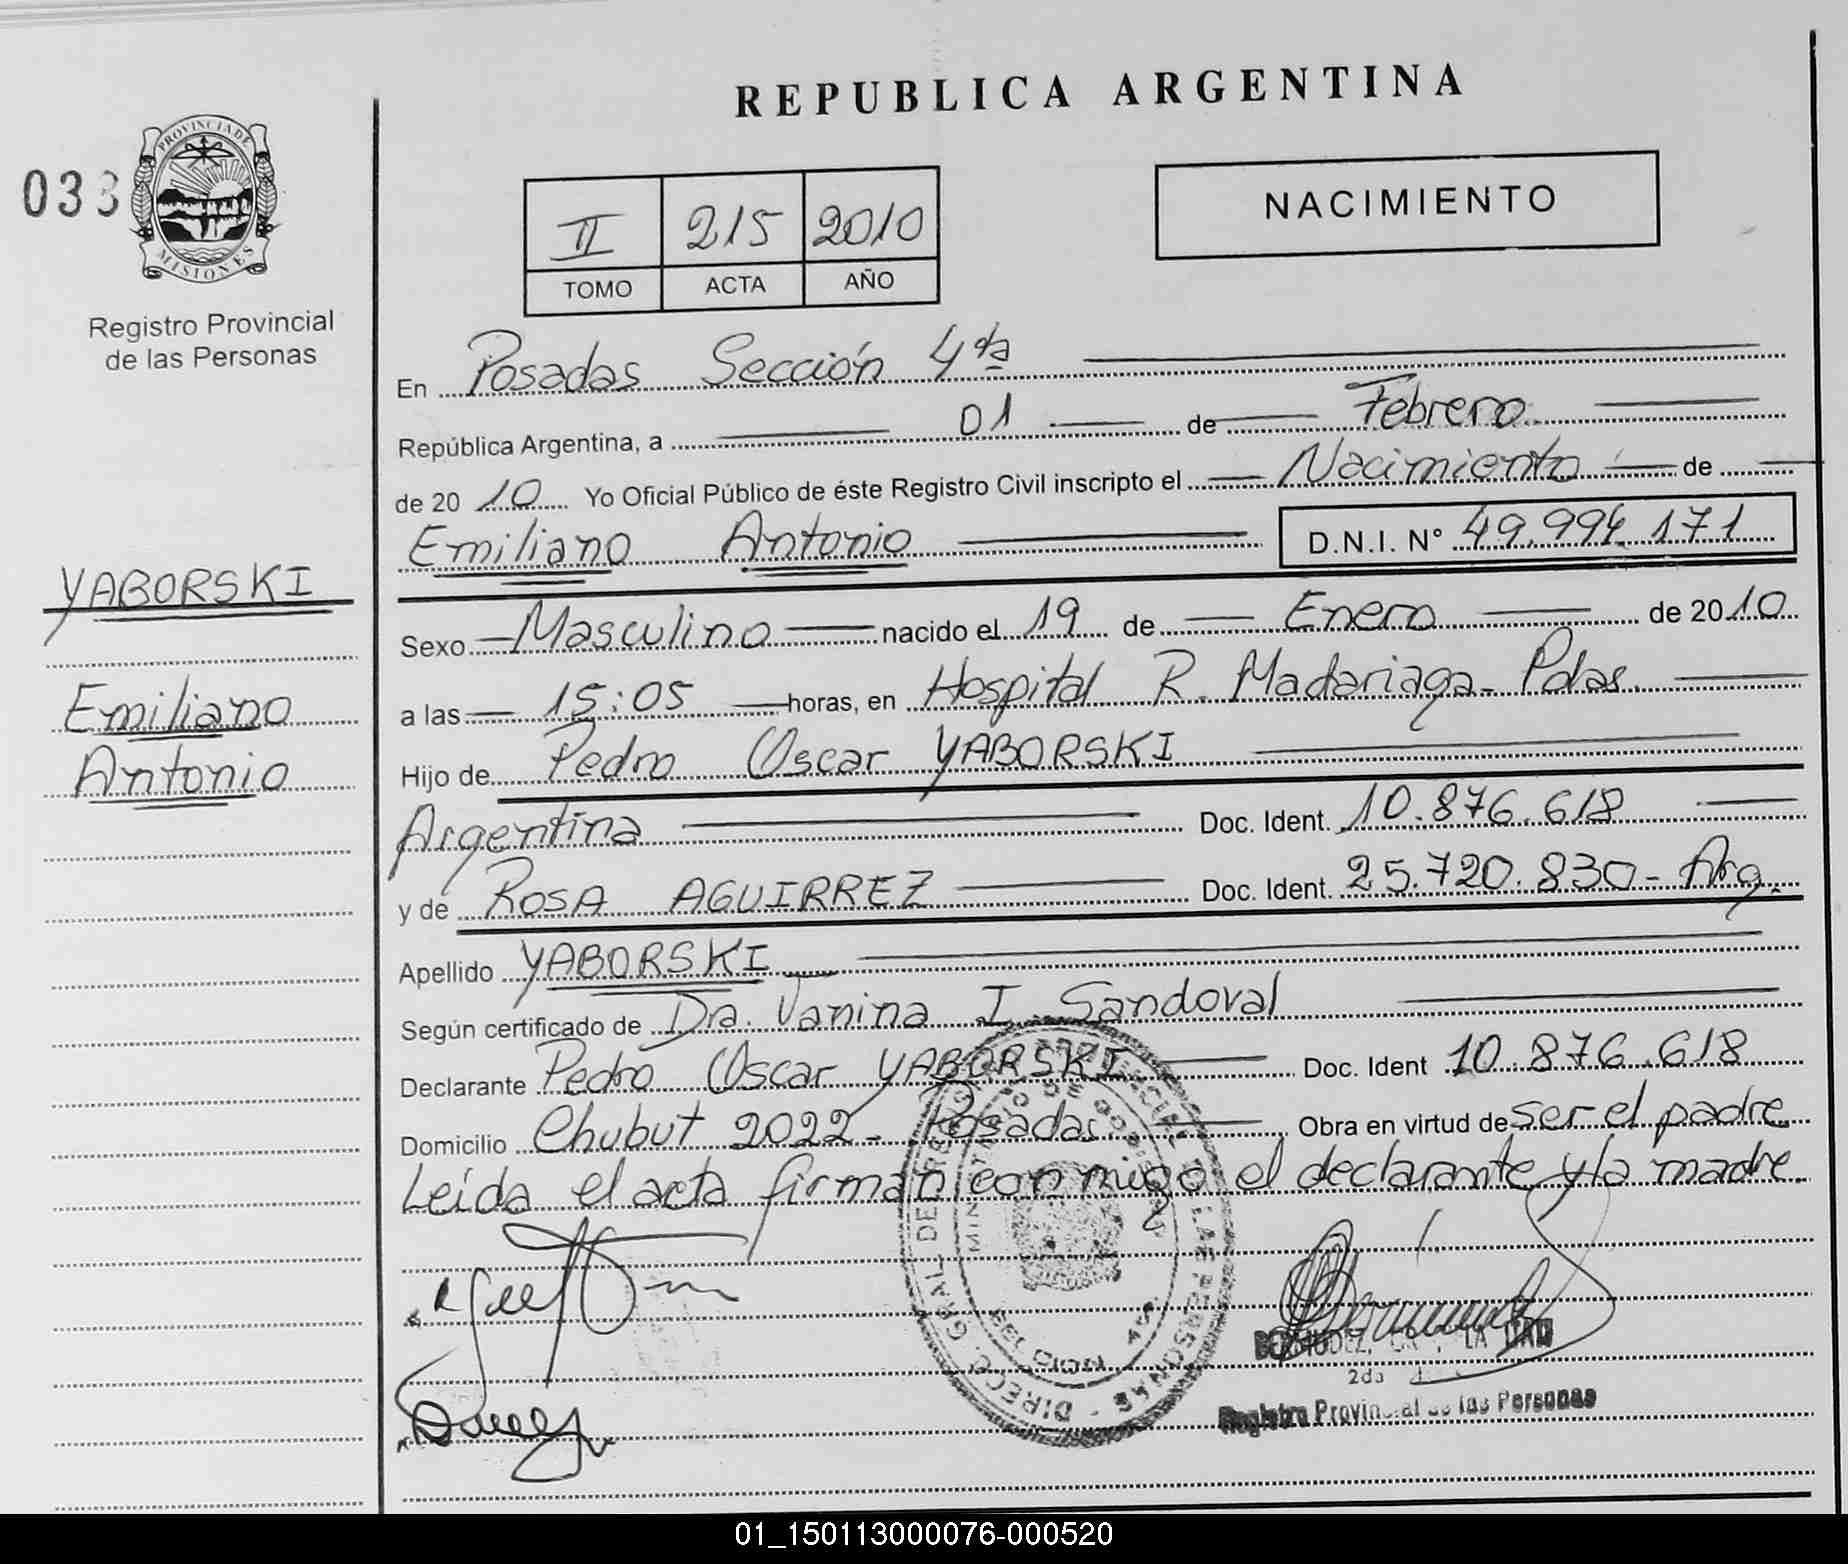 REPUBLICA ARGENTINA
033
PROVINCIA DE
MISIONES
Registro Provincial
de las Personas
II 215 2010
TOMO ACTA AÑO
NACIMIENTO
En Posadas Sección 4ta
República Argentina, a 01 de Febrero
de 2010 Yo Oficial Público de éste Registro Civil inscripto el Nacimiento de
Emiliano Antonio D.N.I. N° 49.994.171
YABORSKI
Emiliano
Antonio
Sexo Masculino nacido el 19 de Enero de 2010
a las 15:05 horas, en Hospital R. Madariaga - Pdas.
Hijo de Pedro Oscar YABORSKI
Argentina Doc. Ident. 10.876.618
y de ROSA AGUIRREZ Doc. Ident. 25.720.830 - Arg.
Apellido YABORSKI
Según certificado de Dra. Vanina I. Sandoval
Declarante Pedro Oscar YABORSKI Doc. Ident 10.876.618
Domicilio Chubut 2022 - Posadas Obra en virtud de ser el padre
Leída el acta firman conmigo el declarante y la madre.
BERMUDEZ,
2da
Registro Provincial de las Personas
01_150113000076-000520